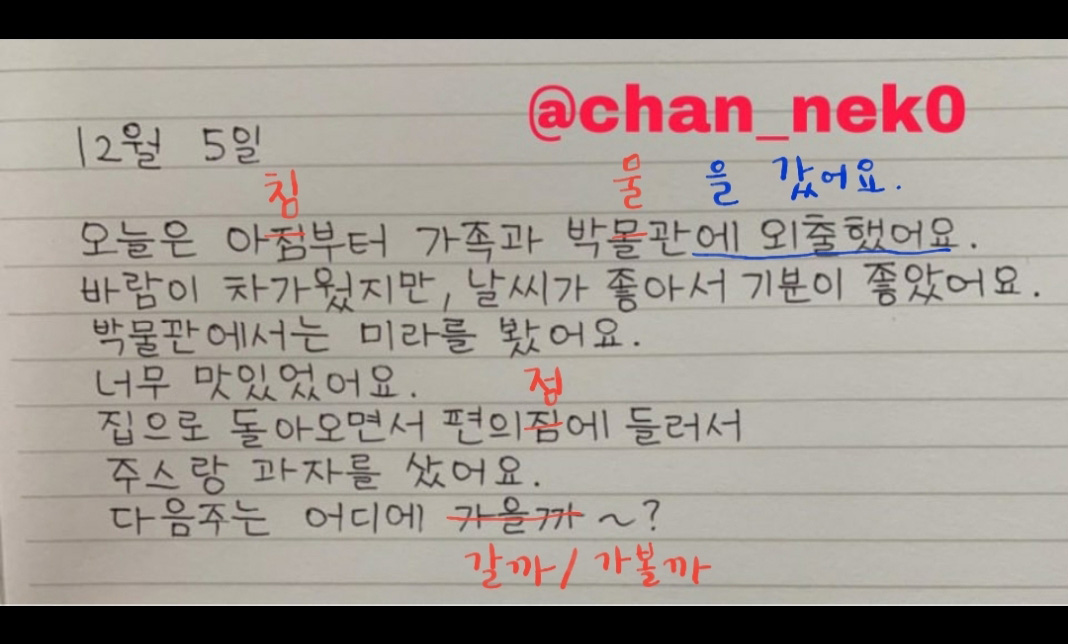 @chan_nek0
12월 5일
침 물 을 갔어요.
오늘은 아짐부터 가족과 박몰관에 외출했어요.
바람이 차가웠지만, 날씨가 좋아서 기분이 좋았어요.
박물관에서는 미라를 봤어요.
너무 맛있었어요.
점
집으로 돌아오면서 편의짐에 들러서
주스랑 과자를 샀어요.
다음주는 어디에 가을까 ~?
갈까 / 가볼까